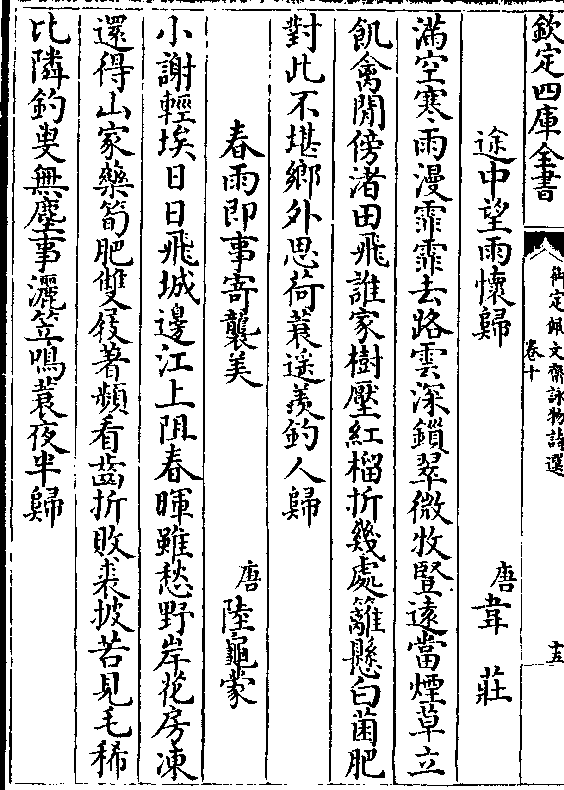 欽定四庫全書
御定佩文齋詠物詩選
卷十
十五
途中望雨懷歸
唐 韋莊
滿空寒雨漫霏霏去路雲深鎖翠微牧豎遠當煙草立
飢禽閒傍渚田飛誰家樹壓紅榴折幾處籬懸白菌肥
對此不堪鄉外思荷蓑遥羨釣人歸
春雨即事寄襲美
唐 陸龜蒙
小謝輕埃日日飛城邊江上阻春暉雖愁野岸花房凍
還得山家藥筍肥雙屐著頻看齒折敗裘披苦見毛稀
比隣釣叟無塵事灑笠鳴蓑夜半歸